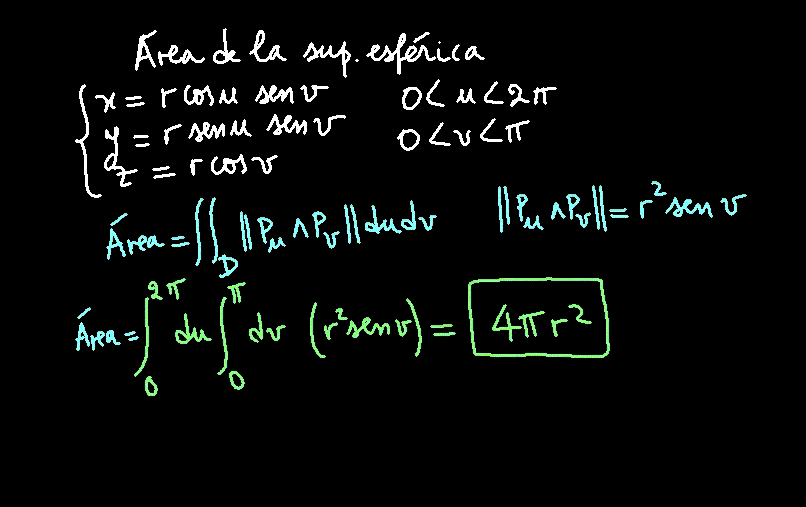 Área de la sup. esférica
x = r cos u sen v 0 < u < 2π
y = r sen u sen v 0 < v < π
z = r cos v
Área = ∬_D ||P_u ∧ P_v|| du dv ||P_u ∧ P_v|| = r² sen v
Área = ∫_0^{2π} du ∫_0^π dv (r² sen v) = 4πr²